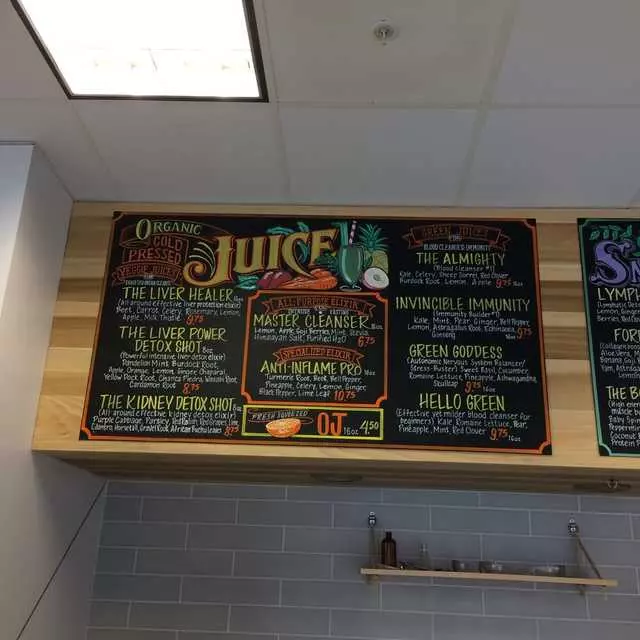 ORGANIC
COLD
PRESSED
VEGGIE JUICES
JUICE
THE LIVER HEALER
(All around effective liver protection elixir)
Beet, Carrot, Celery, Rosemary, Lemon,
Apple, Milk Thistle 9.75
THE LIVER POWER
DETOX SHOT 8oz
(Powerful intensive liver detox elixir)
Dandelion Mint, Burdock Root,
Apple, Orange, Lemon, Ginger, Chaparral,
Yellow Dock Root, Chanca Piedra,
Cardamon Root 8.75
THE KIDNEY DETOX SHOT
(All around effective kidney detox elixir)
Purple Cabbage, Parsley, Lime
African Bush 8.75
ALL PURPOSE ELIXIR
MASTER CLEANSER 16oz
Lemon, Apple, Goji Berries, Mint, Stevia
Himalayan Salt, Purified H2O 6.75
SPECIALIZED ELIXIR
ANTI-INFLAME PRO 16oz
Turmeric Root, Beet, Bell Pepper,
Pineapple, Celery, Lemon, Ginger,
Black Pepper, Lime Leaf 10.75
FRESH SQUEEZED
OJ 16oz 4.50
GREEN JUICE
BLOOD CLEANSER IMMUNITY
THE ALMIGHTY
(Blood cleanser #1)
Kale, Celery, Sheep Sorrel, Red Clover
Burdock Root, Lemon, Apple 9.75
INVINCIBLE IMMUNITY
(Immunity Builder #1)
Kale, Mint, Pear, Ginger, Bell Pepper,
Lemon, Astragalus Root, Echinacea,
Ginseng 9.75
GREEN GODDESS
(Autonomic Nervous System Balancer/
Stress-Buster) Sweet Basil, Cucumber,
Romaine Lettuce, Pineapple, Ashwagandha,
Skullcap 9.75 16oz
HELLO GREEN
(Effective yet milder blood cleanser for
beginners) Kale, Romaine Lettuce, Pear,
Pineapple, Mint, Red Clover 9.75 16oz
S
LYMPH
FOR
THE B